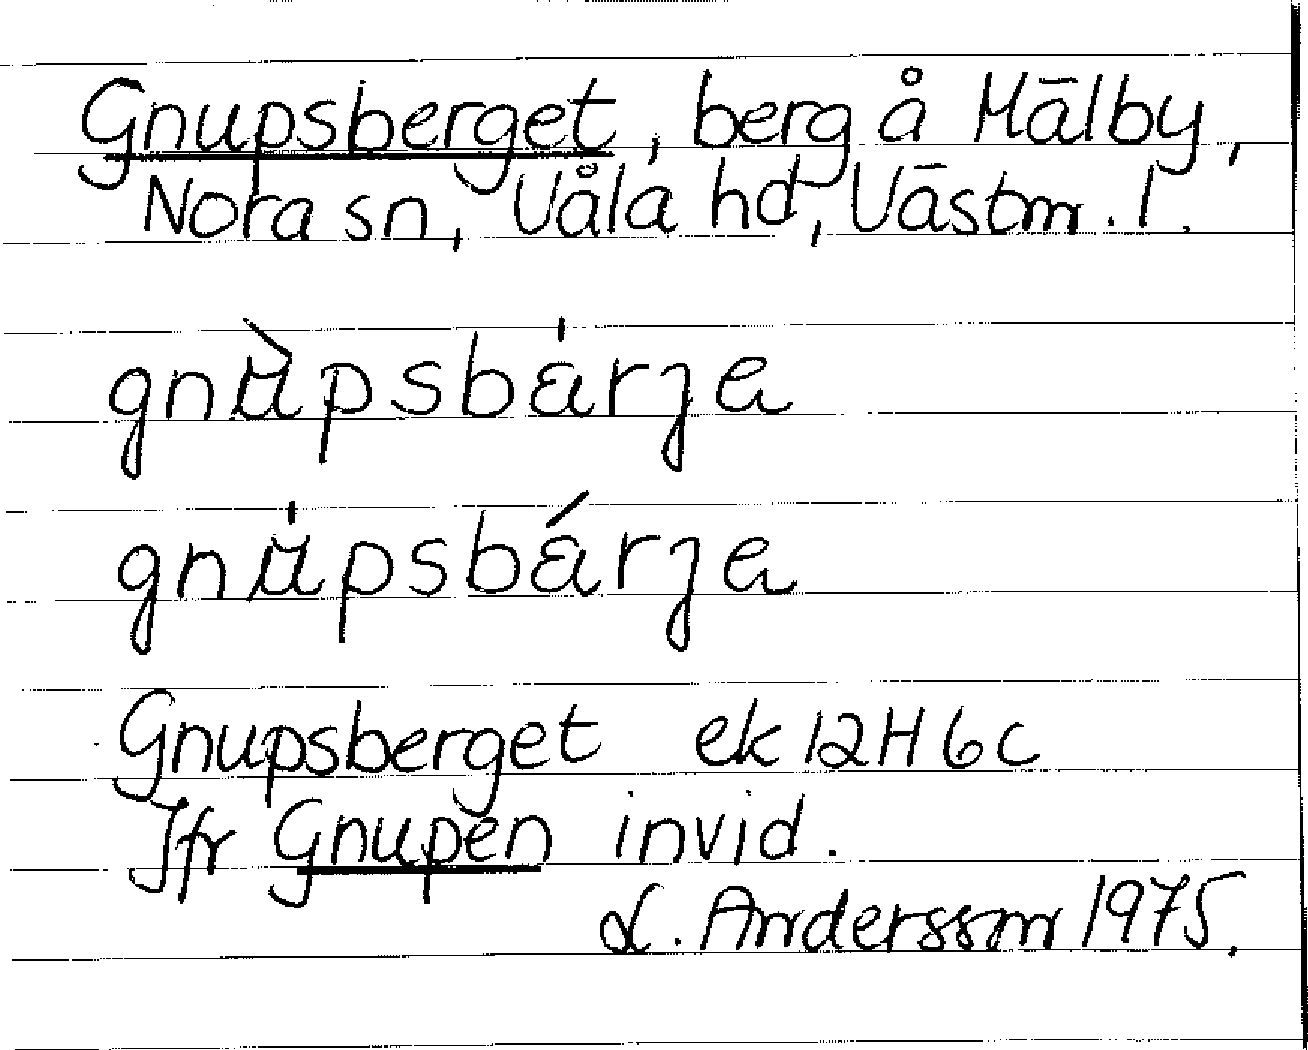 Gnupsberget, berg å Mälby,
Nora sn, Våla hd, Västm. l.
gnùpsbárȷa
gnúpsbárȷa
Gnupsberget ek 12H6c
Jfr Gnupen invid.
L. Andersson 1975.